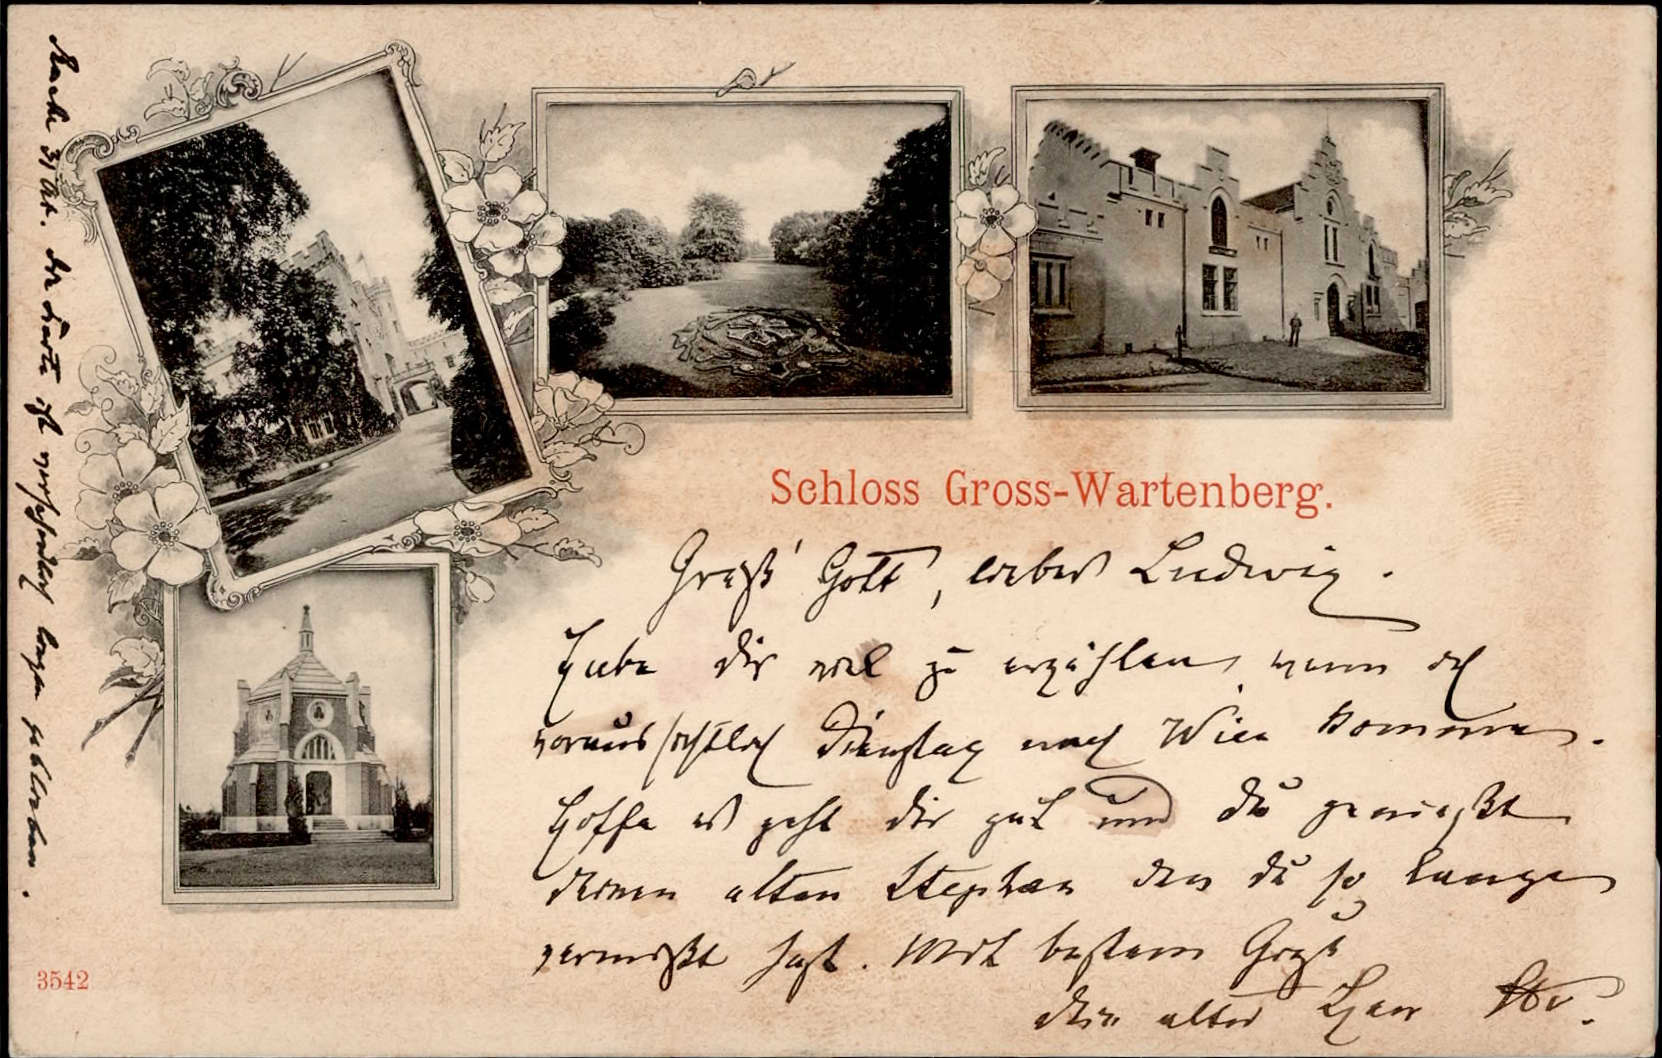 Schloss Gross-Wartenberg.
Grüß' Gott, lieber Ludwig.
Habe dir viel zu erzählen, wenn ich
voraussichtlich Dienstag nach Wien komme.
Hoffe es geht dir gut und du genießt
deinen alten Stephan den du so lange
vermißt hast. Mit bestem Gruß
dein alter
31 Okt. die Karte ist versehentlich liegen geblieben.
3542